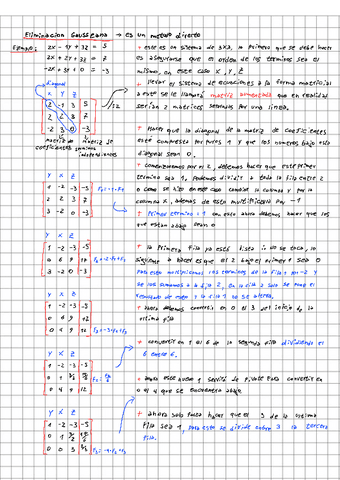 Eliminacion Gaussiana → es un metodo directo
Ejemplo: 2x - 1y + 3z = 5 + este es un sistema de 3x3, lo primero que se debe hacer
2x + 2y + 3z = 7 es asegurarse que el orden de los terminos sea el
-2x + 3y + 0 = -3 mismo, en este caso x, y, z
Diagonal + pasar el sistema de ecuaciones a la forma matricial
x y z a este se le llama matriz aumentada que en realidad
2 -1 3 5 serian 2 matrices separadas por una linea.
2 2 3 7
-2 3 0 -3 + Hacer que la diagonal de la matriz de coeficientes
matriz de matriz de este compuesta por puros 1 y que los numeros bajo esta
coeficientes terminos diagonal sean 0.
independientes
+ comenzaremos por r1 z, debemos hacer que este primer
y x z termino sea 1, podemos dividir a toda la fila entre 2
1 -2 -3 -5 F1=-1·F1 o como se hizo en este caso cambiar la columna y por la
2 2 3 7 columna x, ademas de esto multiplicarla por -1
3 -2 0 -3 + Primer termino = 1 con esto ahora debemos hacer que los
que estan abajo sean 0
y x z
1 -2 -3 -5 + la primera fila ya está lista ya no se toca, lo
0 6 9 17 F2=-2·F1+F2 siguiente a hacer es que el 2 bajo el primer 1 sea 0
3 -2 0 -3 Para esto multiplicamos los terminos de la fila 1 por -2 y
se los sumamos a la fila 2, En la fila 2 solo se pone el
y x z resultado de esto y la fila 1 no se altera,
1 -2 -3 -5 + ahora debemos convertir en 0 el 3 del inicio de la
0 6 9 17 ultima fila
0 4 9 12 F3=-3·F1+F3
+ convertir en 1 el 6 de la segunda fila dividiendo el
y x z 6 entre 6.
1 -2 -3 -5
0 1 3/2 17/6 F2=F2/6 + ahora este nuevo 1 servirá de pivote para convertir en
0 4 9 12 0 el 4 que se encuentra abajo
y x z + ahora solo falta hacer que el 3 de la ultima
1 -2 -3 -5 fila sea 1, para esto se divide entre 3 la tercera
0 1 3/2 17/6 fila.
0 0 3 2/3 F3=-4·F2+F3